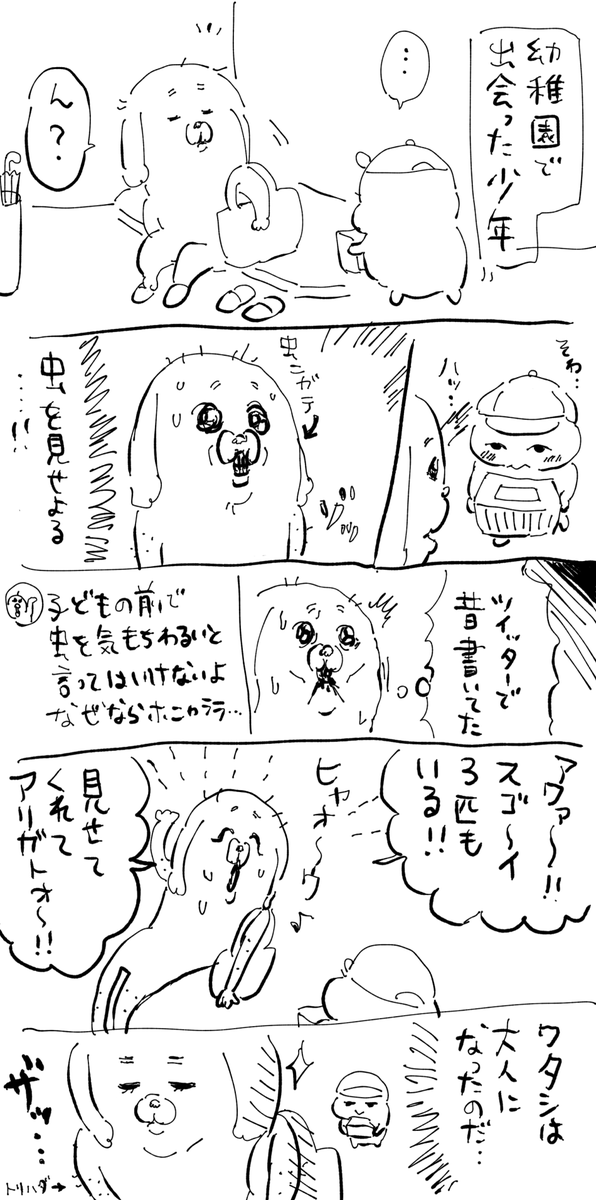 幼稚園で
出会った少年
…
ん？
そわ…
ハッ…
虫ニガテ
虫を見せよる
……!!
ツイッターで
昔書いてた
子どもの前で
虫を気もちわるいと
言ってはいけないよ
なぜならホニャララ…
アワァ〜!!
スゴ〜イ
3匹も
いる!!
ヒャオ〜ウ♪
見せて
くれて
アリガトォ〜!!
ワタシは
大人に
なったのだ…
ザッ…
トリハダ→